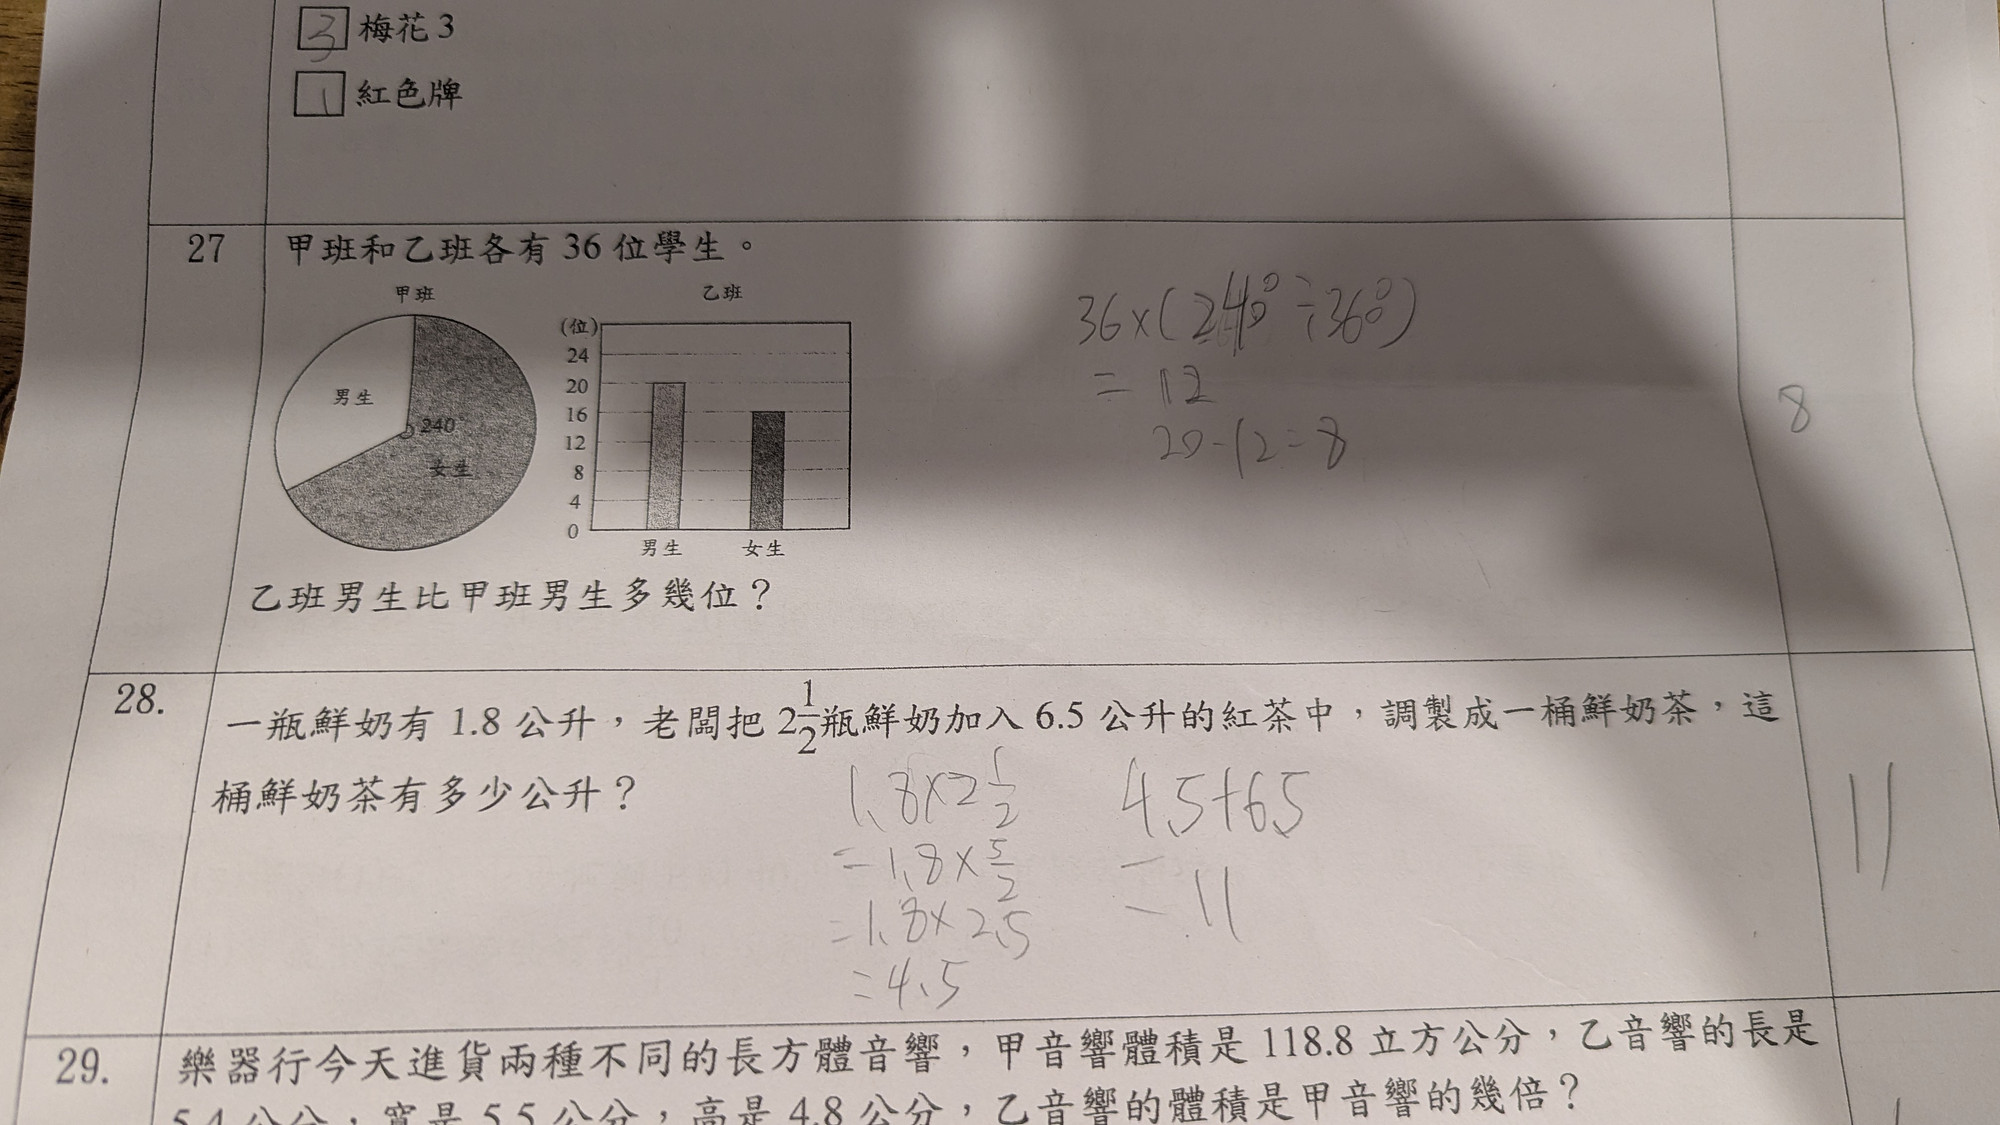 3 梅花 3
1 紅色牌
27 甲班和乙班各有 36 位學生。
甲班
男生
240°
女生
乙班
(位)
24
20
16
12
8
4
0
男生 女生
36×(240°÷360°)
= 12
20-12=8
8
乙班男生比甲班男生多幾位?
28. 一瓶鮮奶有 1.8 公升,老闆把 2 1/2 瓶鮮奶加入 6.5 公升的紅茶中,調製成一桶鮮奶茶,這
桶鮮奶茶有多少公升?
1.8×2 1/2
=1.8×5/2
=1.8×2.5
=4.5
4.5+6.5
=11
11
29. 樂器行今天進貨兩種不同的長方體音響,甲音響體積是 118.8 立方公分,乙音響的長是
5.4 公分,寬是 5.5 公分,高是 4.8 公分,乙音響的體積是甲音響的幾倍?